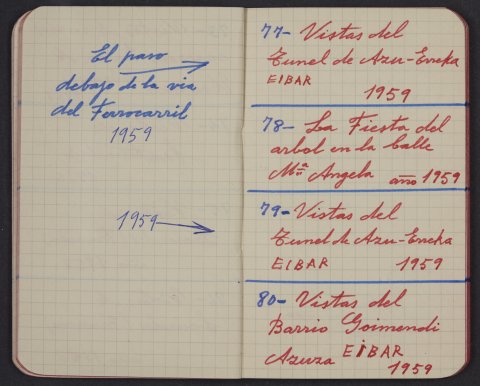 El paso
debajo de la via
del Ferrocarril
1959
1959
77- Vistas del
Tunel de Azu-Erreka
EIBAR
1959
78- La Fiesta del
arbol en la Calle
Mª Angela año 1959
79- Vistas del
Tunel de Azu-Erreka
EIBAR 1959
80- Vistas del
Barrio Goimendi
Azuza EiBAR
1959